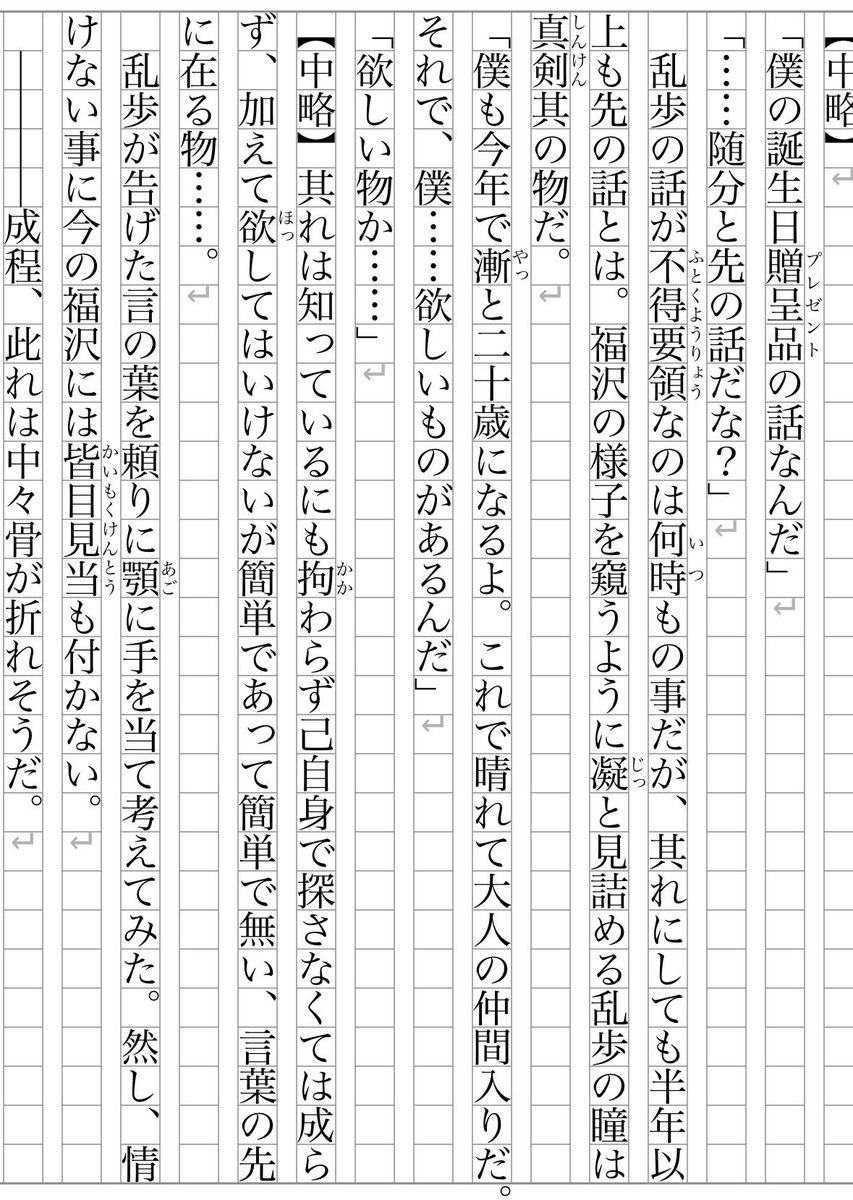 【中略】↵
「僕の誕生日贈呈品の話なんだ」↵
プレゼント
「……随分と先の話だな？」↵
　乱歩の話が不得要領なのは何時もの事だが、其れにしても半年以
ふとくようりょう
いつ
上も先の話とは。福沢の様子を窺うように凝と見詰める乱歩の瞳は
じっ
真剣其の物だ。↵
しんけん
「僕も今年で漸と二十歳になるよ。これで晴れて大人の仲間入りだ。
やっ
それで、僕……欲しいものがあるんだ」↵
「欲しい物か……」↵
【中略】其れは知っているにも拘わらず己自身で探さなくては成ら
かか
ず、加えて欲してはいけないが簡単であって簡単で無い、言葉の先
ほっ
に在る物……。↵
　乱歩が告げた言の葉を頼りに顎に手を当て考えてみた。然し、情
あご
けない事に今の福沢には皆目見当も付かない。↵
かいもくけんとう
　――――成程、此れは中々骨が折れそうだ。↵